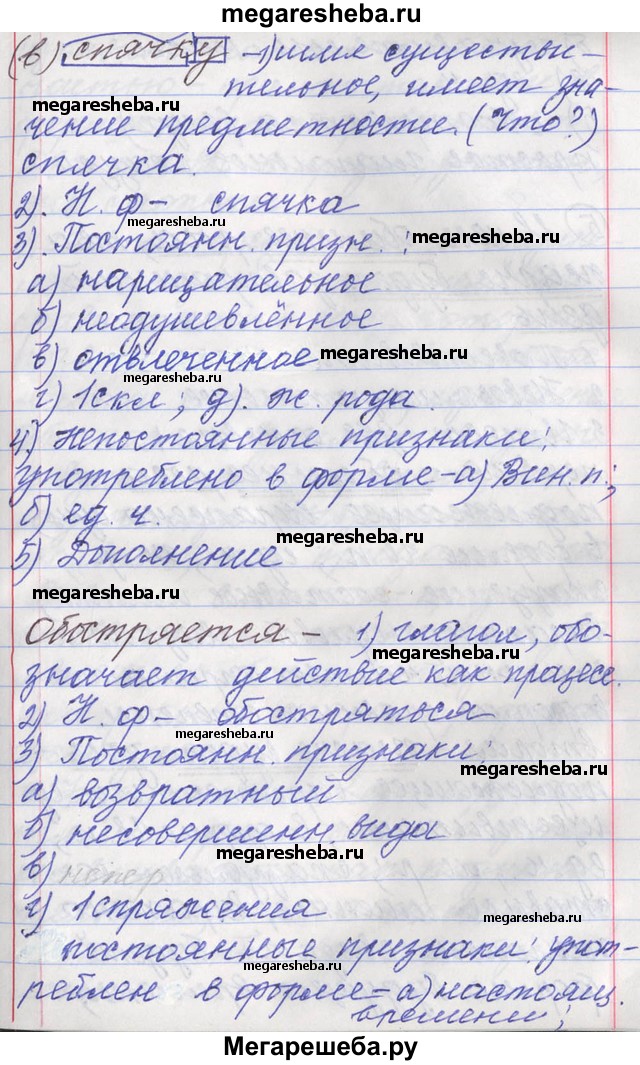 megaresheba.ru
(в) спячку – 1) имя существи-
megaresheba.ru
тельное, имеет зна-
megaresheba.ru
чение предметности. (Что?)
спячка.
2). Н. ф – спячка
megaresheba.ru
3). Постоянн. призн. :
megaresheba.ru
а) нарицательное
б) неодушевлённое
в) отвлеченное
megaresheba.ru
megaresheba.ru
г) 1 скл ; д). ж. рода.
4) Непостоянные признаки:
употреблено в форме – а) Вин. п.;
б) ед. ч.
megaresheba.ru
5) Дополнение
megaresheba.ru
Обостряется – 1) глагол, обо-
megaresheba.ru
значает действие как процесс.
2) Н. ф – обостряться
megaresheba.ru
3) Постоянн. признаки:
megaresheba.ru
а) возвратный
б) несовершенн. вида
megaresheba.ru
в) непер
г) 1 спряжения
megaresheba.ru
постоянные признаки: упот-
megaresheba.ru
реблен в форме – а) настоящ.
времени;
Мегарешеба.ру